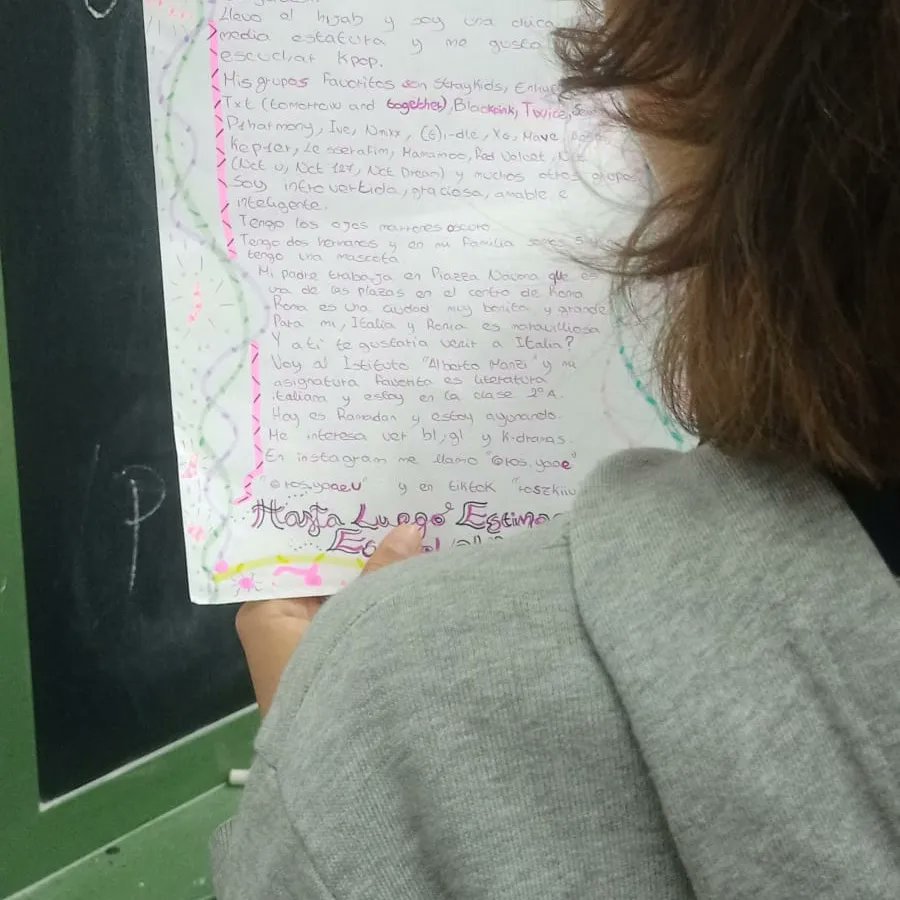 Llevo el hijab y soy una chica
media estatura y me gusta
escuchar Kpop.
Mis grupos favoritos son StrayKids,
Txt (tomorrow and together), Blackpink, Twice,
P1harmony, Ive, Nmixx, (G)i-dle, XG, Mave
Kep1er, Le sserafim, Mamamoo, Red Velvet, Nct
(Nct U, Nct 127, Nct Dream) y muchos otros grupos
Soy introvertida, graciosa, amable e
inteligente.
Tengo los ojos marrones oscuro
Tengo dos hermanos y en mi familia somos 5 y
tengo una mascota
Mi padre trabaja en Piazza Navona que es
una de las plazas en el centro de Roma
Roma es una ciudad muy bonita y grande
Para mi, Italia y Roma es maravilliosa
Y a ti te gustaria venir a Italia?
Voy al Istituto "Alberto Manzi" y mi
asignatura favorita es literatura
italiana y estoy en la clase 2° A.
Hoy es Ramadan y estoy ayunando.
Me interesa ver bl, gl y K-dramas.
En instagram me llamo "@ros.yaae"
"@ros.yaaeu" y en tiktok "roszkiiu
Hasta Luego
P